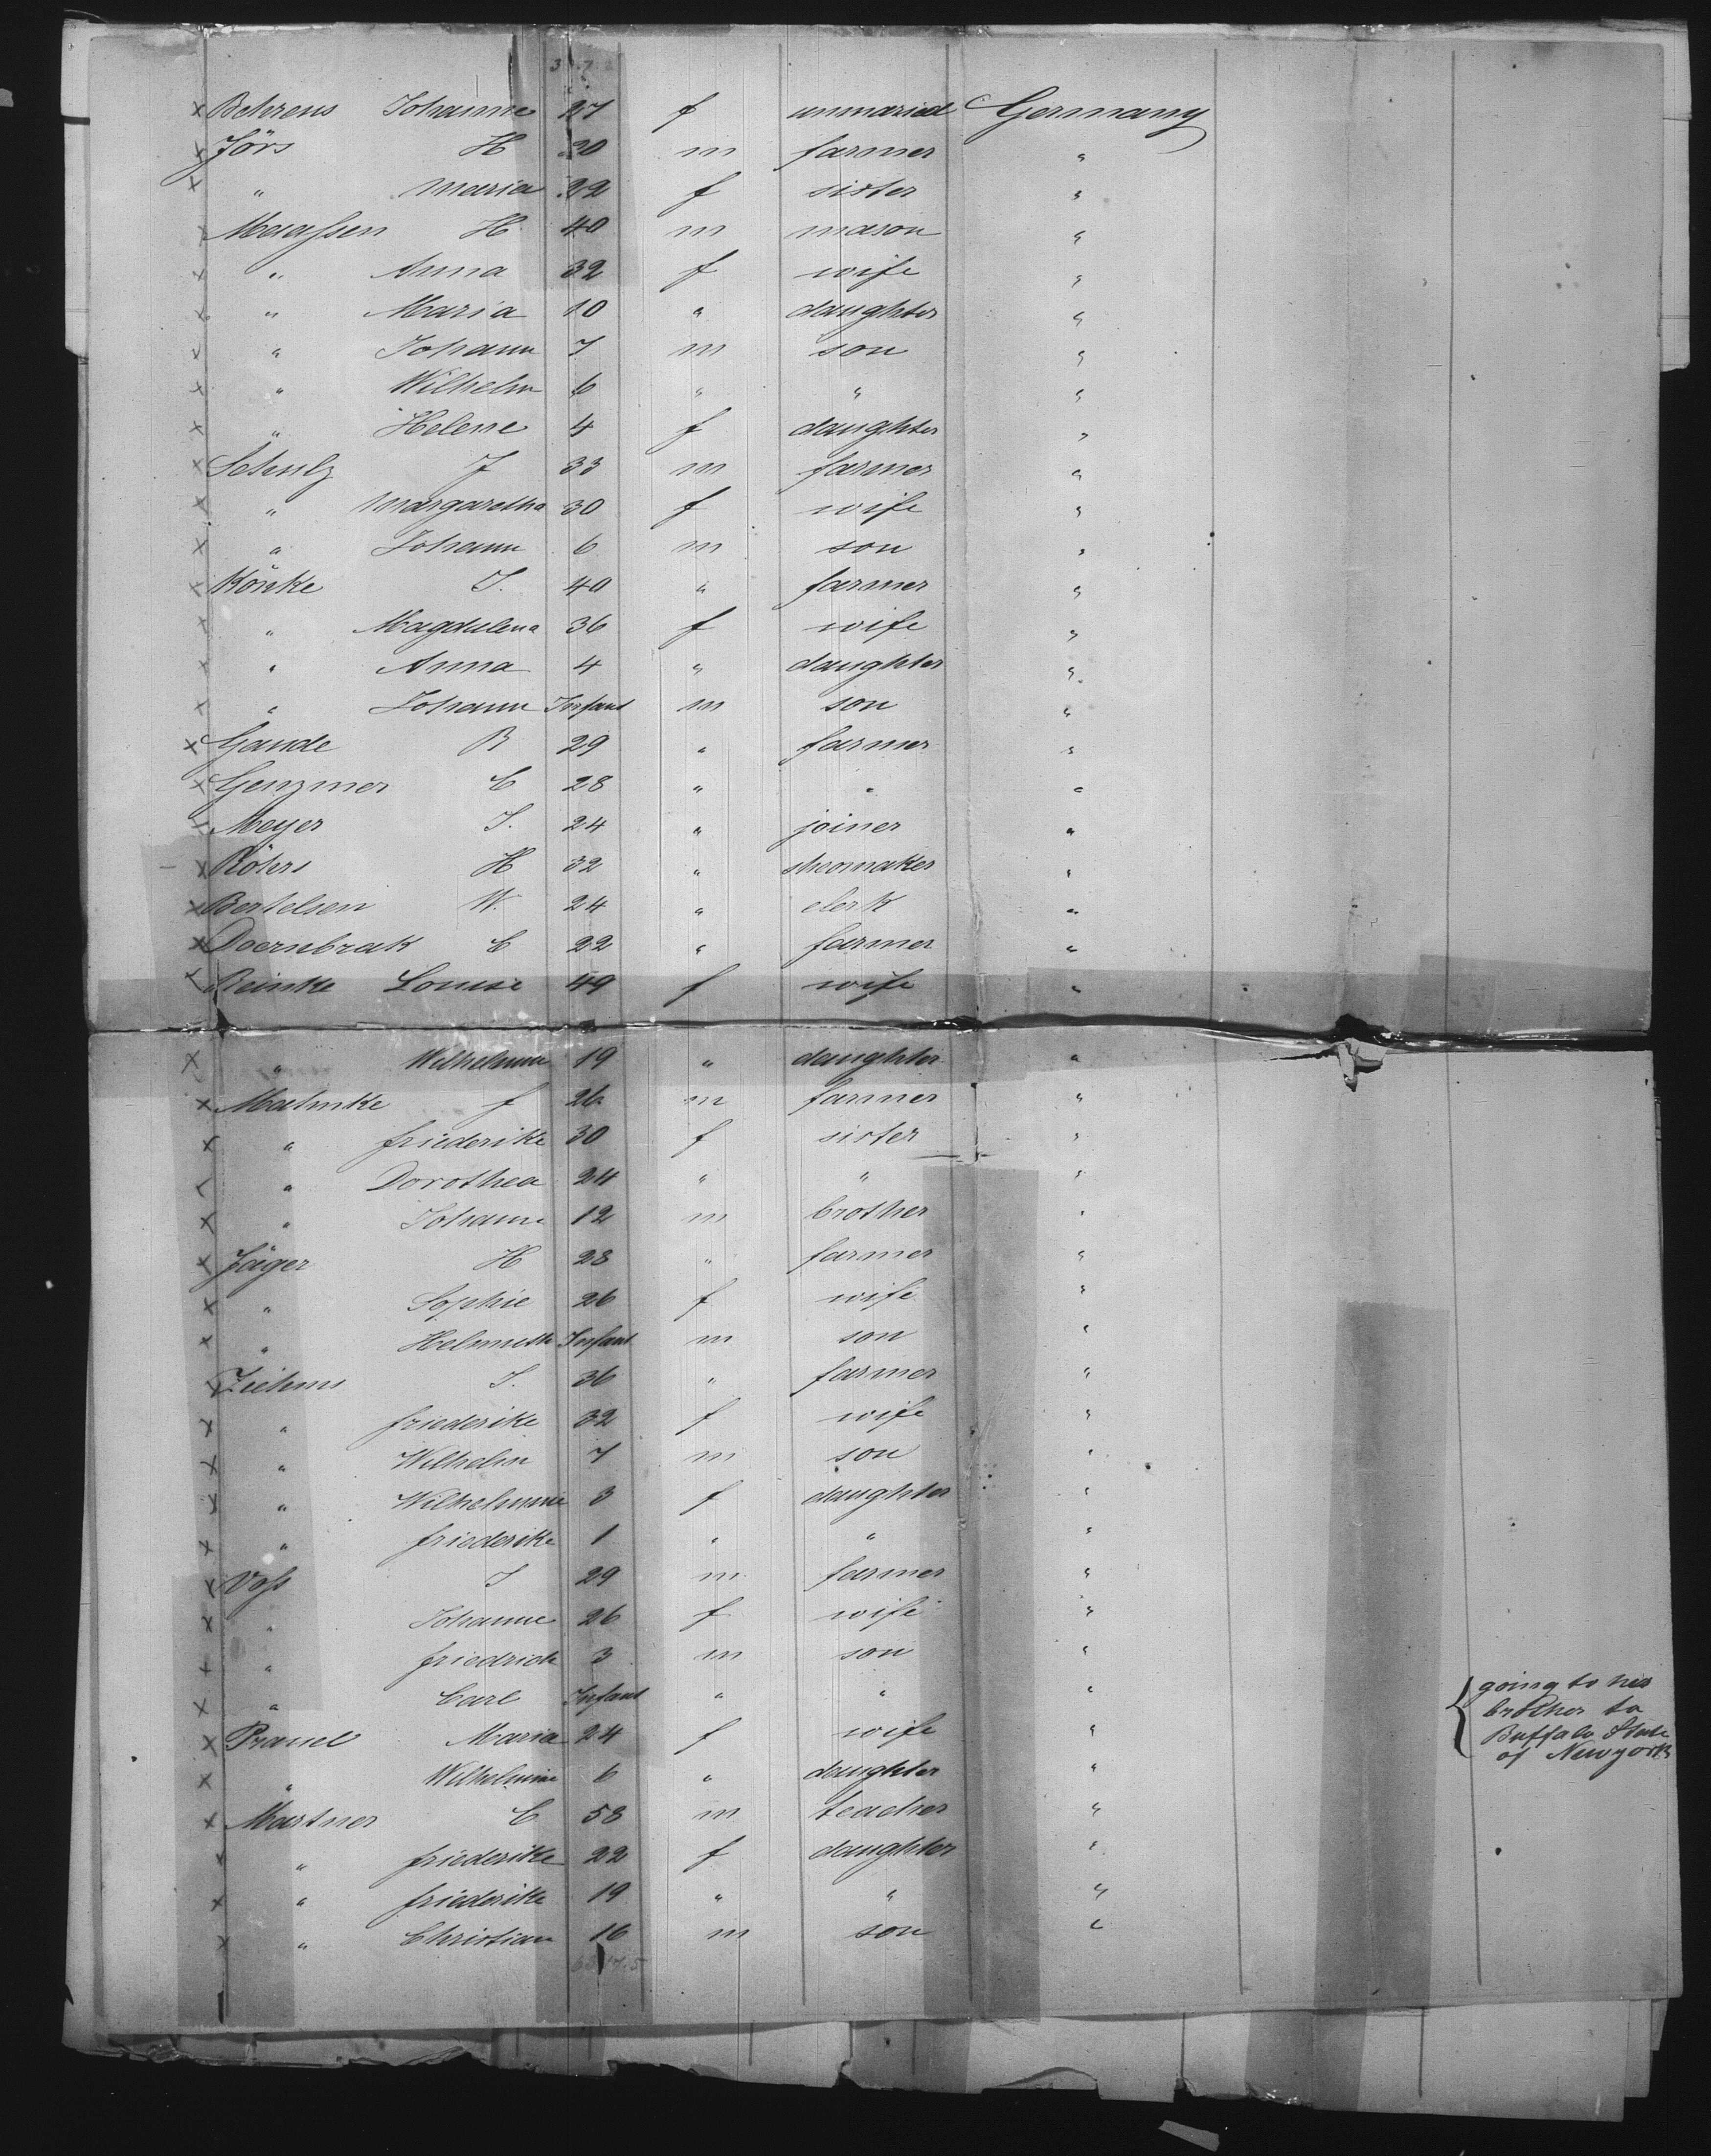 Behrens Johanne 27 f unmaried Germany
Jörs H 20 m farmer "
" Maria 22 f sister "
Maaſsen H. 40 m mason "
" Anna 32 f wife "
" Maria 10 " daughter "
" Johann 7 m son "
" Wilhelm 6 " " "
" Helene 4 f daughter "
Schulz J 33 m farmer "
" Margaretha 30 f wife "
" Johann 6 m son "
Könke J. 40 " farmer "
" Magdalena 36 f wife "
" Anna 4 " daughter "
" Johann Infant m son "
Gande R 29 " farmer "
Genzmer C 28 " " "
Meyer J. 24 " joiner "
Röhrs H 32 " shoemaker "
Bertelsen W. 24 " clerk "
Doernbrak C 22 " farmer "
Reinke Louise 49 f wife "
" Wilhelmine 19 " daughter "
Mahnke f 26 m farmer "
" friederike 30 f sister "
" Dorothea 24 " " "
" Johann 12 m brother "
Jäger H 28 " farmer "
" Sophie 26 f wife "
" Helmuth Infant m son "
Ziehms J. 36 " farmer "
" friederike 32 f wife "
" Wilhelm 7 m son "
" Wilhelmine 3 f daughter "
" friederike 1 " " "
Voſs J 29 m farmer "
" Johanne 26 f wife "
" friedrich 3 m son "
" Carl Infant " " "
Pranel Maria 24 f wife " { going to his brother to Buffalo State of Newyork
" Wilhelmine 6 " daughter "
Martner C 58 m teacher "
" friederike 22 f daughter "
" friederike 19 " " "
" Christian 16 m son "